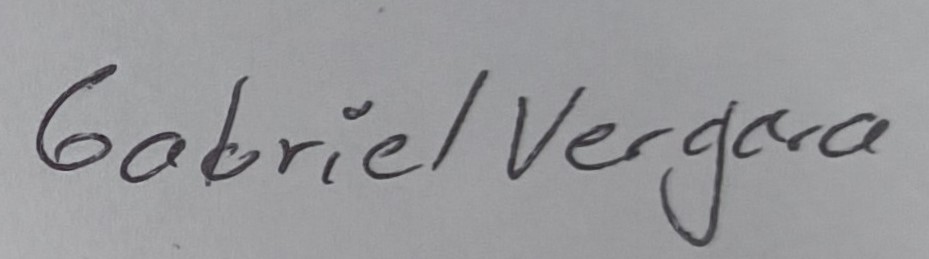 Gabriel Vergara